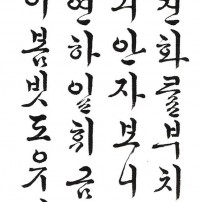 화를부치
안자보니
연하일휘금
이봄빗도유